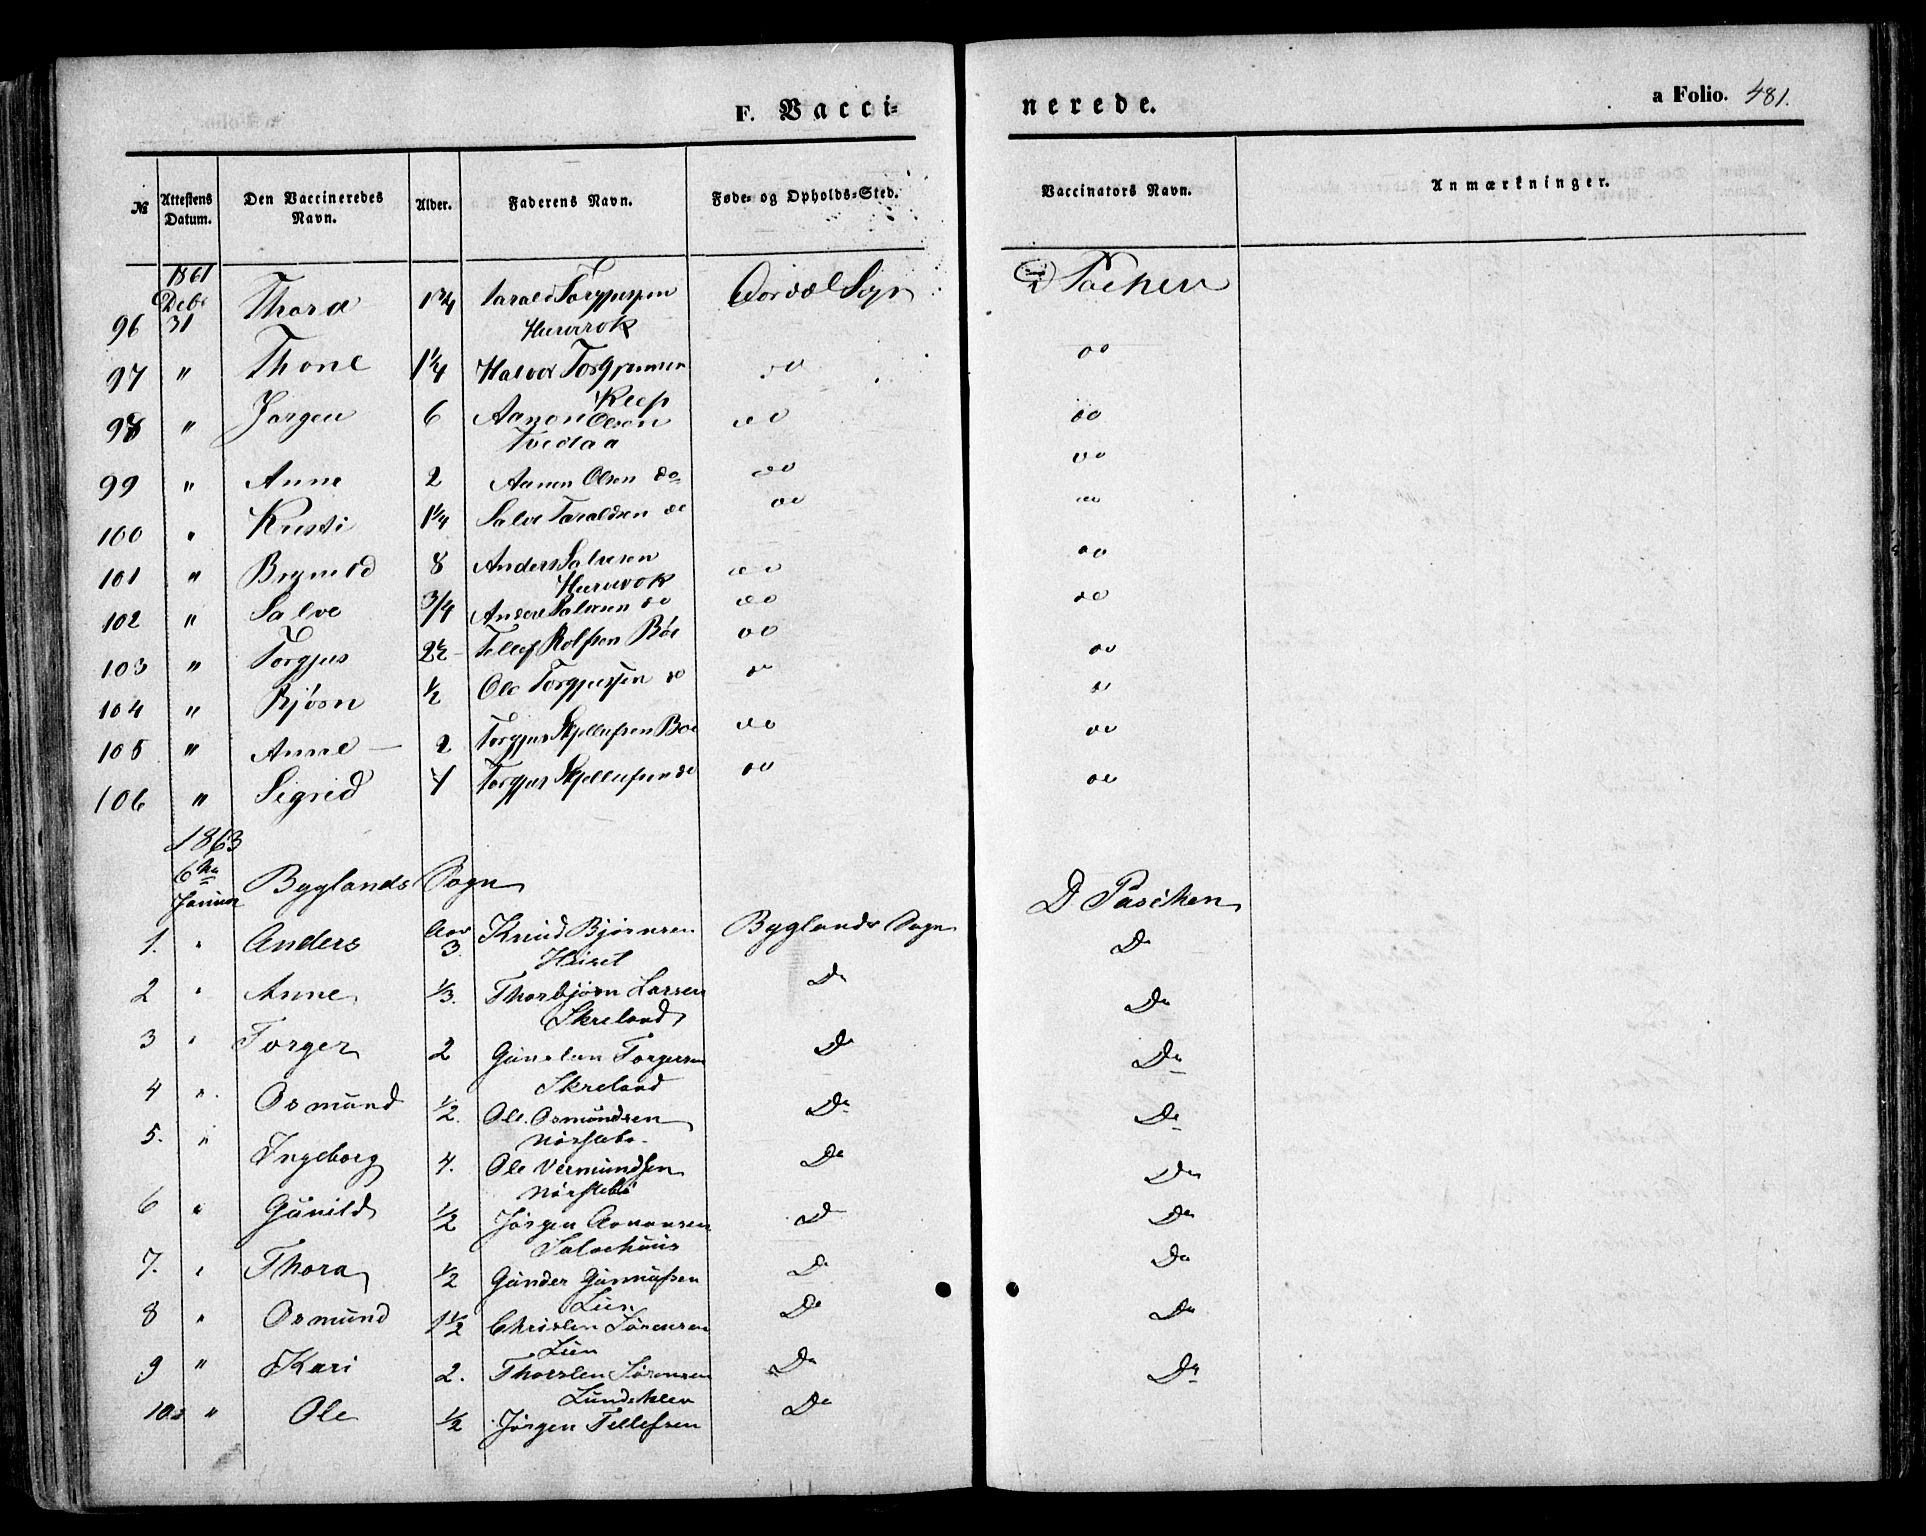 F. Vacci=
nerede.
a Folio. 481.
№ Attestens Datum. Den Vaccineredes Navn. Alder. Faderens Navn. Føde- og Opholds-Sted. Vaccinators Navn. Anmærkninger.
1861
96 Debr 31 Thora 1¾ Tarald Torgjussen
97 " Thone 1¼ Halvor Torgjussen do do
Klep
98 " Jørgen 6 Aanon Olsen do do
Tveitaa
99 " Anne 2 Aanon Olsen do do do
100 " Kristi 1¼ Salve Taraldsen do do do
101 " 8 Anders Salvesen do do
102 " Salve 3/4 Anders Salvesen do do do
103 " Torgjus 2½ Tellef Rolfsen Bøe do do
104 " Bjørn ½ Ole Torgjussen do do do
105 " Anne 2 Torgjus Skjellufsen Boe do do
106 " Sigrid 4 Torgjus Skjellufsen do do do
1863
6te Januar Byglands Sogn D Paschen
1. " Anders Aar 3. Knud Bjørnsen Byglands Sogn Do
2 " Anne 1/3. Thorbjørn Larsen Do Do
Skreland
3 " Torger 2 Torgersen Do Do
Skreland
4 " Osmund 1/2. Ole Osmundsen Do Do
5. " Ingeborg 4. Ole Vermundsen Do Do
6 " Gunild 1/2 Jørgen Aanonsen Do Do
7. " Thora 1/2 Gunder Gunnufsen Do Do
Lien
8 " Osmund 1½ Christen Sørensen Do Do
Lien
9 " Kari 2. Sørensen Do Do
10. " Ole 1/2 Jørgen Tellefsen Do